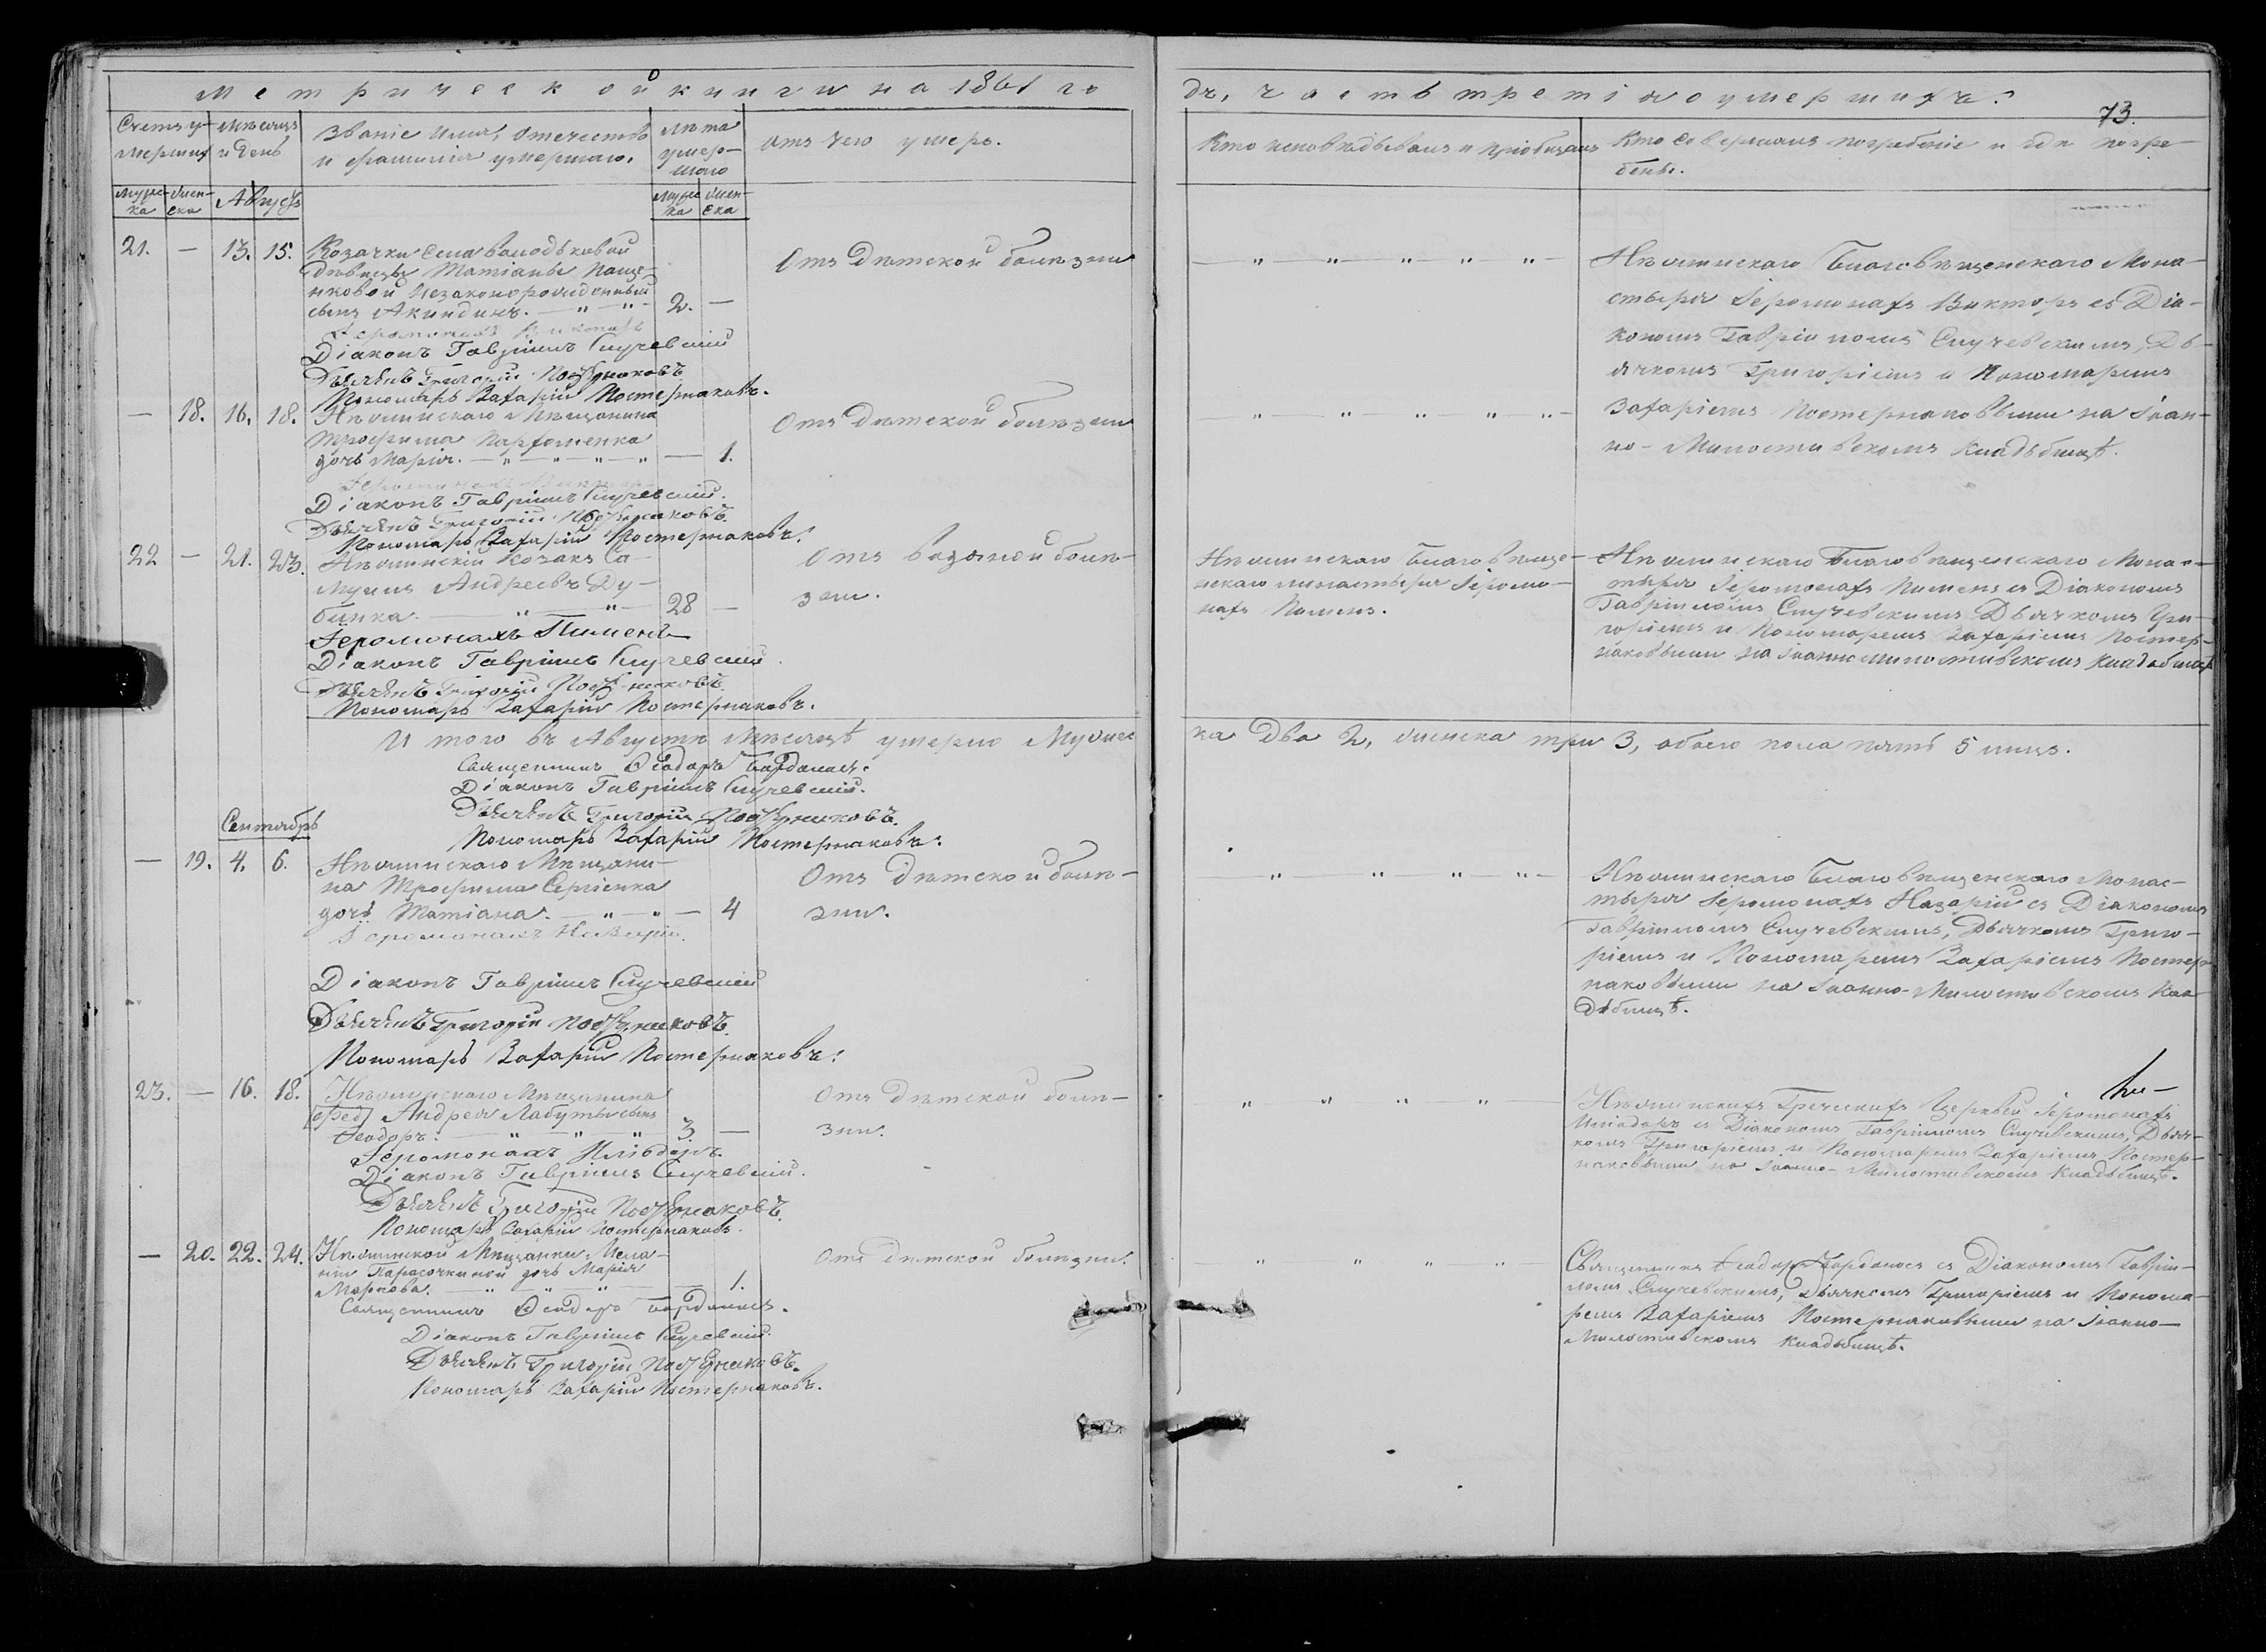 Метрической книги на 1861 го
дъ, часть третія о умершихъ.
73.
Счетъ у-
мершихъ
Мѣсяцъ
и день
Званіе имя, отечество
и фамилія умершаго.
Лѣта
умер-
шаго
Отъ чего умеръ.
Кто исповѣдывалъ и пріобщалъ
Кто совершалъ погребеніе и гдѣ погре-
бены.
Муже-
ка
Жен-
ска
Августъ
Муже
ка
Жен-
ска
21. — 13. 15.
Козачки села
дѣвицы Татіаны Паще-
нковой незаконорожденный
сынъ Акиндинъ. — " — " — 2. —
Іеромонахъ Викторъ
Діаконъ Гавріилъ Случевскій
Дьячекъ Григорій Постернаковъ
Пономарь Захарій Постернаковъ.
Отъ дѣтской болѣзни
— " — " — " — " — " —
Нѣжинскаго Благовѣщенскаго Мона-
стыря Іеромонахъ Викторъ съ Діа-
кономъ Гавріиломъ Случевскимъ, Дь-
ячкомъ Григоріемъ и Пономаремъ
Захаріемъ Постернаковыми на Іоан-
но-Милостивскомъ кладьбищѣ.
— 18. 16. 18.
Нѣжинскаго Мѣщанина
Трофима Парфоменка
дочь Марія. — " — " — " — " — 1.
Іеромонахъ Викторъ
Діаконъ Гавріилъ Случевскій.
Дьячекъ Григорій Постернаковъ.
Пономарь Захарій Постернаковъ.
Отъ дѣтской болѣзни
— " — " — " — " — " —
22 — 21. 23.
Нѣжинскій Козакъ Са-
муилъ Андреевъ Ду-
бинка. — " — " — 28 —
Іеромонахъ Пименъ
Діаконъ Гавріилъ Случевскій.
Дьячекъ Григорій Постернаковъ.
Пономарь Захарій Постернаковъ.
Отъ водяной болѣ-
зни.
Нѣжинскаго Благовѣще-
нскаго монастыря Іеромо-
нахъ Пименъ.
Нѣжинскаго Благовѣщенскаго Монас-
тыря Іеромонахъ Пименъ съ Діакономъ
Гавріиломъ Случевскимъ Дьячкомъ Гри-
горіемъ и Пономаремъ Захаріемъ Постер-
наковыми на Іоанно милостивскомъ кладбищѣ
И того въ Августѣ мѣсяцѣ умерло Мужес
ка два 2, женска три 3, обоего пола пять 5 лицъ.
Священникъ Ѳеодоръ Борданосъ.
Діаконъ Гавріилъ Случевскій.
Дьячекъ Григорій Постернаковъ.
Пономарь Захарій Постернаковъ.
Сентябрь
— 19. 4. 6.
Нѣжинскаго Мѣщани-
на Трофима Сергіенка
дочь Татіана. — " — " — 4
Іеромонахъ Назарій.
Діаконъ Гавріилъ Случевскій
Дьячекъ Григорій Постернаковъ.
Пономарь Захарій Постернаковъ.
Отъ дѣтской болѣ-
зни.
— " — " — " — " —
Нѣжинскаго Благовѣщенскаго Монас-
тыря Іеромонахъ Назарій съ Діакономъ
Гавріиломъ Случевскимъ, Дьячкомъ Григо-
ріемъ и Пономаремъ Захаріемъ Постер-
наковыми на Іоанно-Милостивскомъ Кла-
дьбищѣ.
23. — 16. 18.
Нѣжинскаго Мѣщанина
Андрея Лабуты сынъ
Ѳеодоръ. — " — " — " — 3. —
Іеромонахъ Иліодоръ.
Діаконъ Гавріилъ Случевскій.
Дьячекъ Григорій Постернаковъ.
Пономарь Захарій Постернаковъ.
Отъ дѣтской болѣ-
зни.
" " " "
Нѣжинскихъ Греческихъ Церквей Іеромонахъ
Иліодоръ съ Діакономъ Гавріиломъ Случевскимъ, Дьяч-
комъ Григоріемъ и Пономаремъ Захаріемъ Постер-
наковыми на Іоанно-Милостивскомъ Кладьбищѣ.
— 20. 22. 24.
Нѣжинской Мѣщанки Мела-
ніи Парасочкиной дочь Марія
Маркова. — " — " — " — 1.
Священникъ Ѳеодоръ Борданосъ.
Діаконъ Гавріилъ Случевскій.
Дьячекъ Григорій Постернаковъ.
Пономарь Захарій Постернаковъ.
Отъ дѣтской болѣзни.
— " — " — " — " —
Священникъ Ѳеодоръ Борданосъ съ Діакономъ Гаврiи-
ломъ Случевскимъ, Дьячкомъ Григоріемъ и Понома-
ремъ Захаріемъ Постернаковыми на Іоанно-
Милостивскомъ кладьбищѣ.